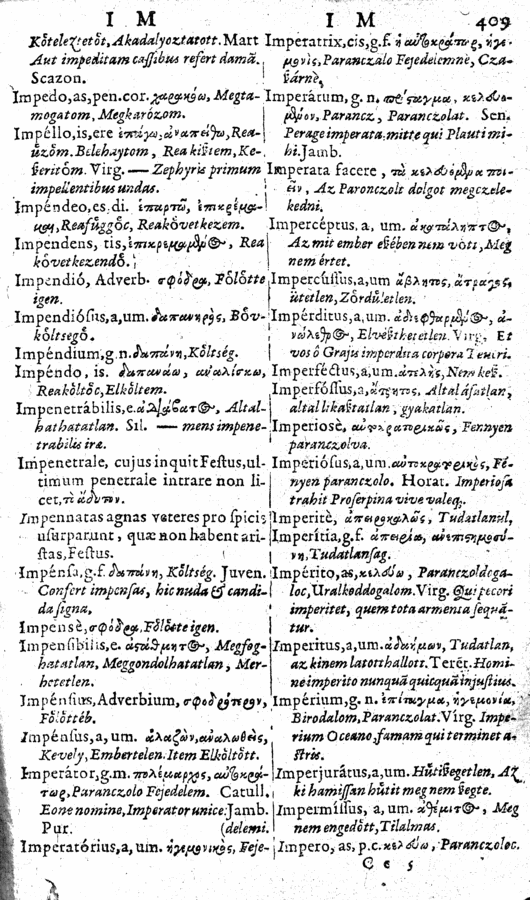 I M
I M
409
Köteleztetőt, Akadalyoztatott. Mart
Aut impeditam cassibus refert damã.
Scazon.
Impedo, as, pen. cor. χαρακόω, Megta-
mogatom, Megkarózom.
Impéllo, is, ere ἐπάγω, ἀναπείθω, Rea-
űzöm. Belehaytom, Reakißtem, Ke-
ßeritöm. Virg. — Zephyris primum
impellentibus undas.
Impéndeo, es, di. ἐπαρτῶ, ἐπικρέμα-
μαι, Reafűggőc, Reakövetkezem.
Impendens, tis, ἐπικρεμαμϐμος, Rea
következendő.
Impendió, Adverb. σφόδρα, Fölötte
igen.
Impendiósus, a, um. δαπανηρὸς, Böv-
költsegő.
Impéndium, g. n. δαπάνη, Költség.
Impéndo, is. δαπανάω, ἀναλίσκω,
Reaköltőc, Elköltem.
Impenetrábilis, e. Altal-
hathatatlan. Sil. — mens impene-
trabilis iræ.
Impenetrale, cujus inquit Festus, ul-
timum penetrale intrare non li-
cet, τὸ ἄδυτον.
Impennatas agnas veteres pro spicis
usurparunt, quæ non habent ari-
stas, Festus.
Impénsa, g. f. δαπάνη, Költség. Juven.
Confert impensas, hic nuda & candi-
da signa.
Impensè, σφόδρα, Fölötte igen.
Impensibilis, e. ἀςάθμητος, Megfog-
hatatlan, Meggondolhatatlan, Mer-
hetetlen.
Impénsius, Adverbium, σφοδρότερον,
Fölöttéb.
Impénsus, a, um. ἀλαζὼν, ἀναλωθεὶς,
Kevely, Embertelen. Item Elköltött.
Imperátor, g. m. πολέμαρχος, αὐτοκρά-
τωρ, Paranczolo Fejedelem. Catull.
Eone nomine, Imperator unice. Jamb.
Pur. (delemi.
Imperatórius, a, um. ἡγεμονικὸς, Feje-
Imperatrix, cis, g. f. ἡ αὐτοκράτωρ, ἡγε-
μονὶς, Paranczalo Fejedelemne, Cza-
ßárne,
Imperátum, g. n. πρόςαγμα, κελευό-
μϐμον, Parancz, Paranczolat. Sen.
Perage imperata, mitte qui Plauti mi-
hi. Jamb.
Imperata facere, τὰ κελευόμϐμα ποι-
εῖν, Az Paronczolt dolgot megczele-
kedni.
Impercéptus, a, um. ἀκατάληπτος,
Az mit ember eßében nem vött, Meg
nem értet.
Impercússus, a, um ἄβλητος,
ütetlen, Zördületlen.
Impérditus, a, um. ἀ-
Elveßthetetlen. Virg. Et
vos ô Graju imperdita corpora Teucri.
Imperféctus, a, um. ἀτελὴς, Nem keß.
Imperfóssus, a, ἄτρητος, Altal ásatlan,
altal likaßtatlan, gyakatlan.
Imperiosè, αὐτοκρατορικῶς, Fennyen
paranczolva.
Imperiósus, a, um. αὐτοκρατορικὸς, Fé-
nyen paranczolo. Horat. Imperiosa
trahit Proserpina vive valeq;.
Imperitè, ἀπειροκαλῶς, Tudatlanul,
Imperítia, g. f. ἀπειρία, ἀνεπιςημοσύ-
νη, Tudatlansag.
Impérito, as, κελεύω, Paranczoldoga-
loc, Uralkoddogalom. Virg. Qui pecori
imperitet, quem tota armenta sequã-
tur.
Imperitus, a, um. ἀδαήμων, Tudatlan,
az kinem latott hallott. Teret. Homi-
ne imperito nunquã quicquã injustius.
Impérium, g. n. ἐπίταγμα, ἡγεμονία,
Birodalom, Paranczolat. Virg. Impe-
rium Oceano, famam qui terminet a-
stris.
Imperjurátus, a, um. Hütißegetlen, Az
ki hamissan hütit meg nem ßegte.
Impermíssus, a, um. ἀθέμιτος, Meg
nem engedött, Tilalmas.
Impero, as, p. c. κελεύω, Paranczoloc.
C c 5